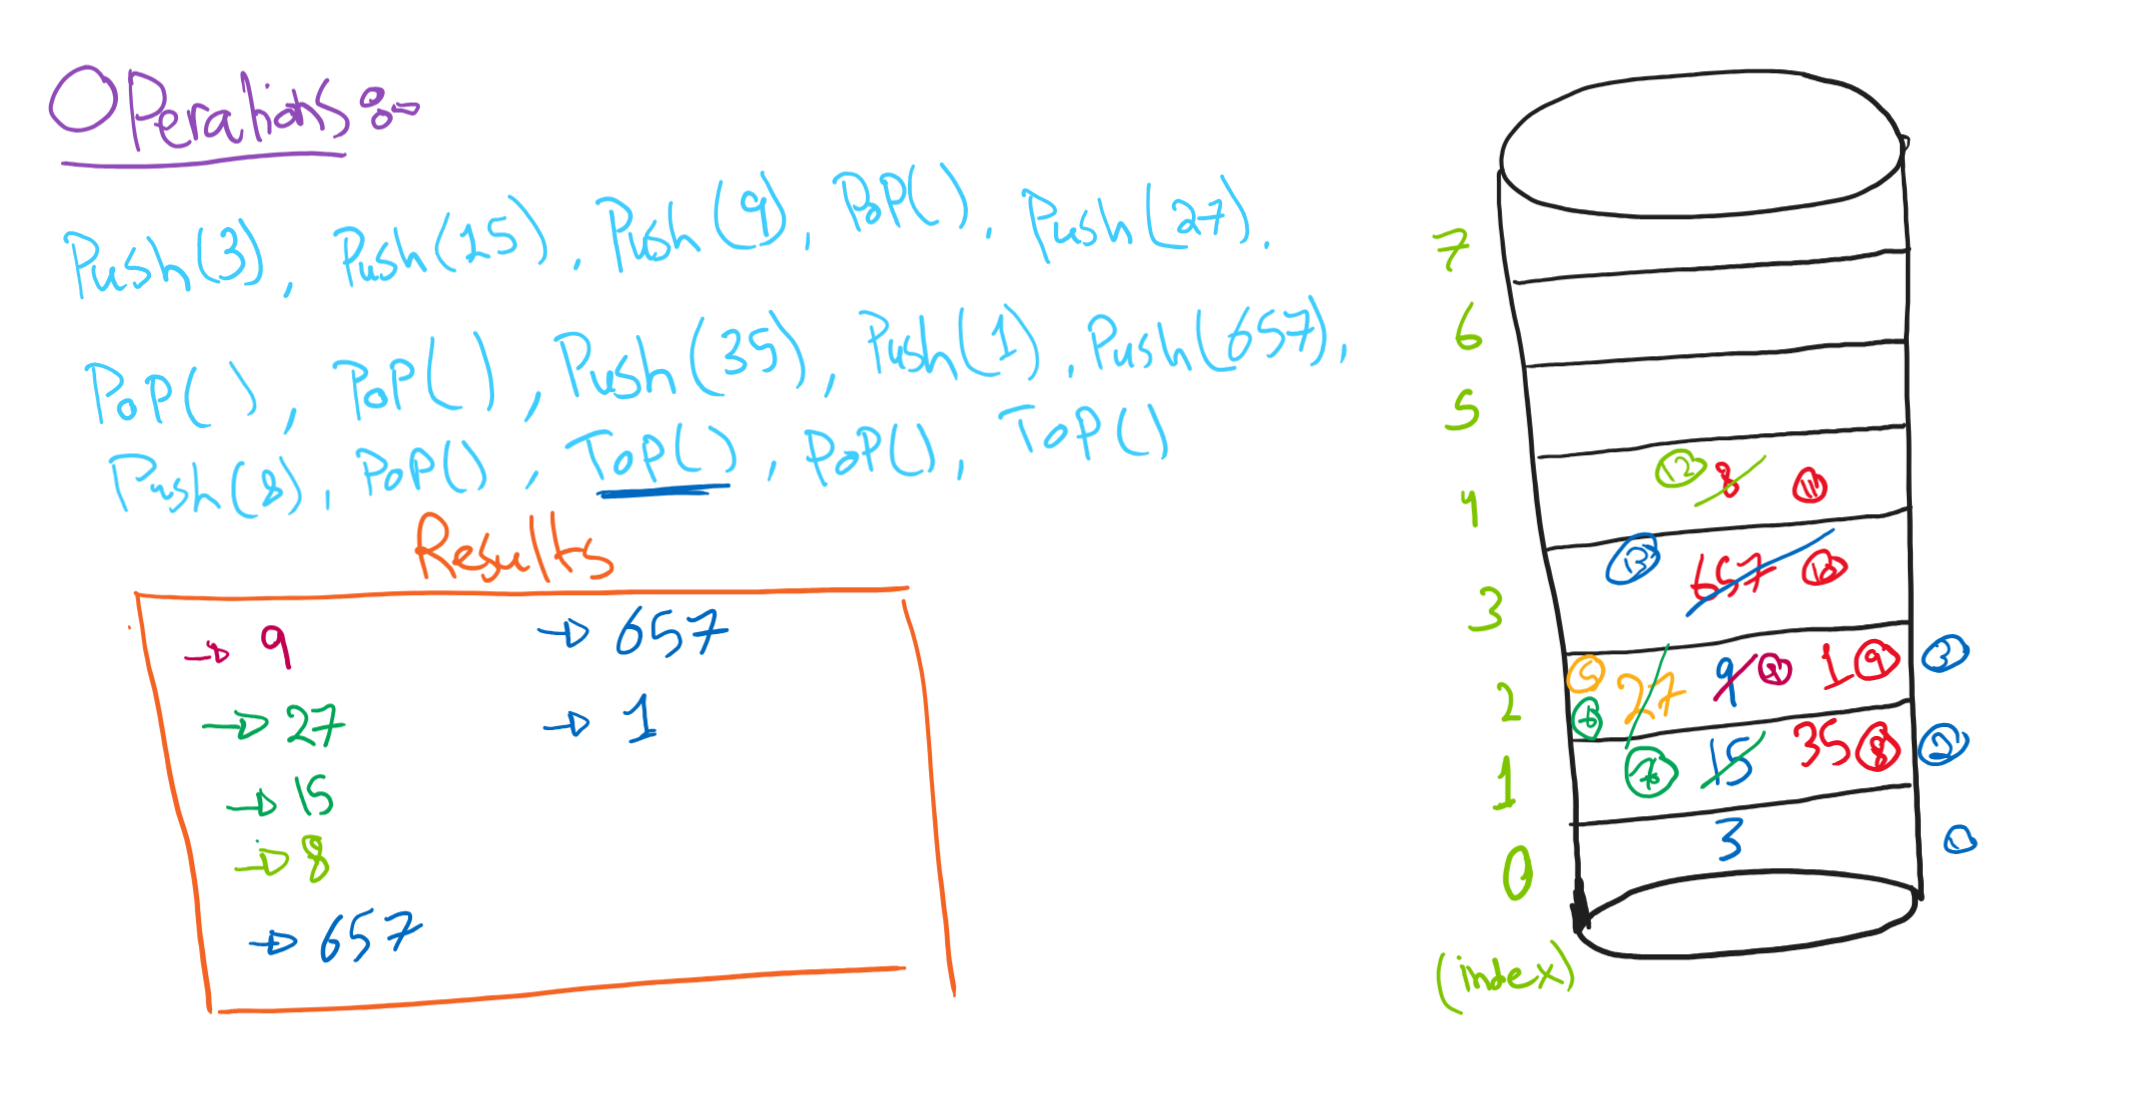 Operations:-
Push(3), Push(15), Push(9), PoP(), Push(27),
PoP(), PoP(), Push(35), Push(1), Push(657),
Push(8), PoP(), ToP(), PoP(), ToP()
Results
→ 9
→ 27
→ 15
→ 8
→ 657
→ 657
→ 1
7
6
5
4 12 8 11
3 13 657 10
2 5 6 27 9 4 1 9 3
1 7 15 35 8 2
0 3 1
(index)